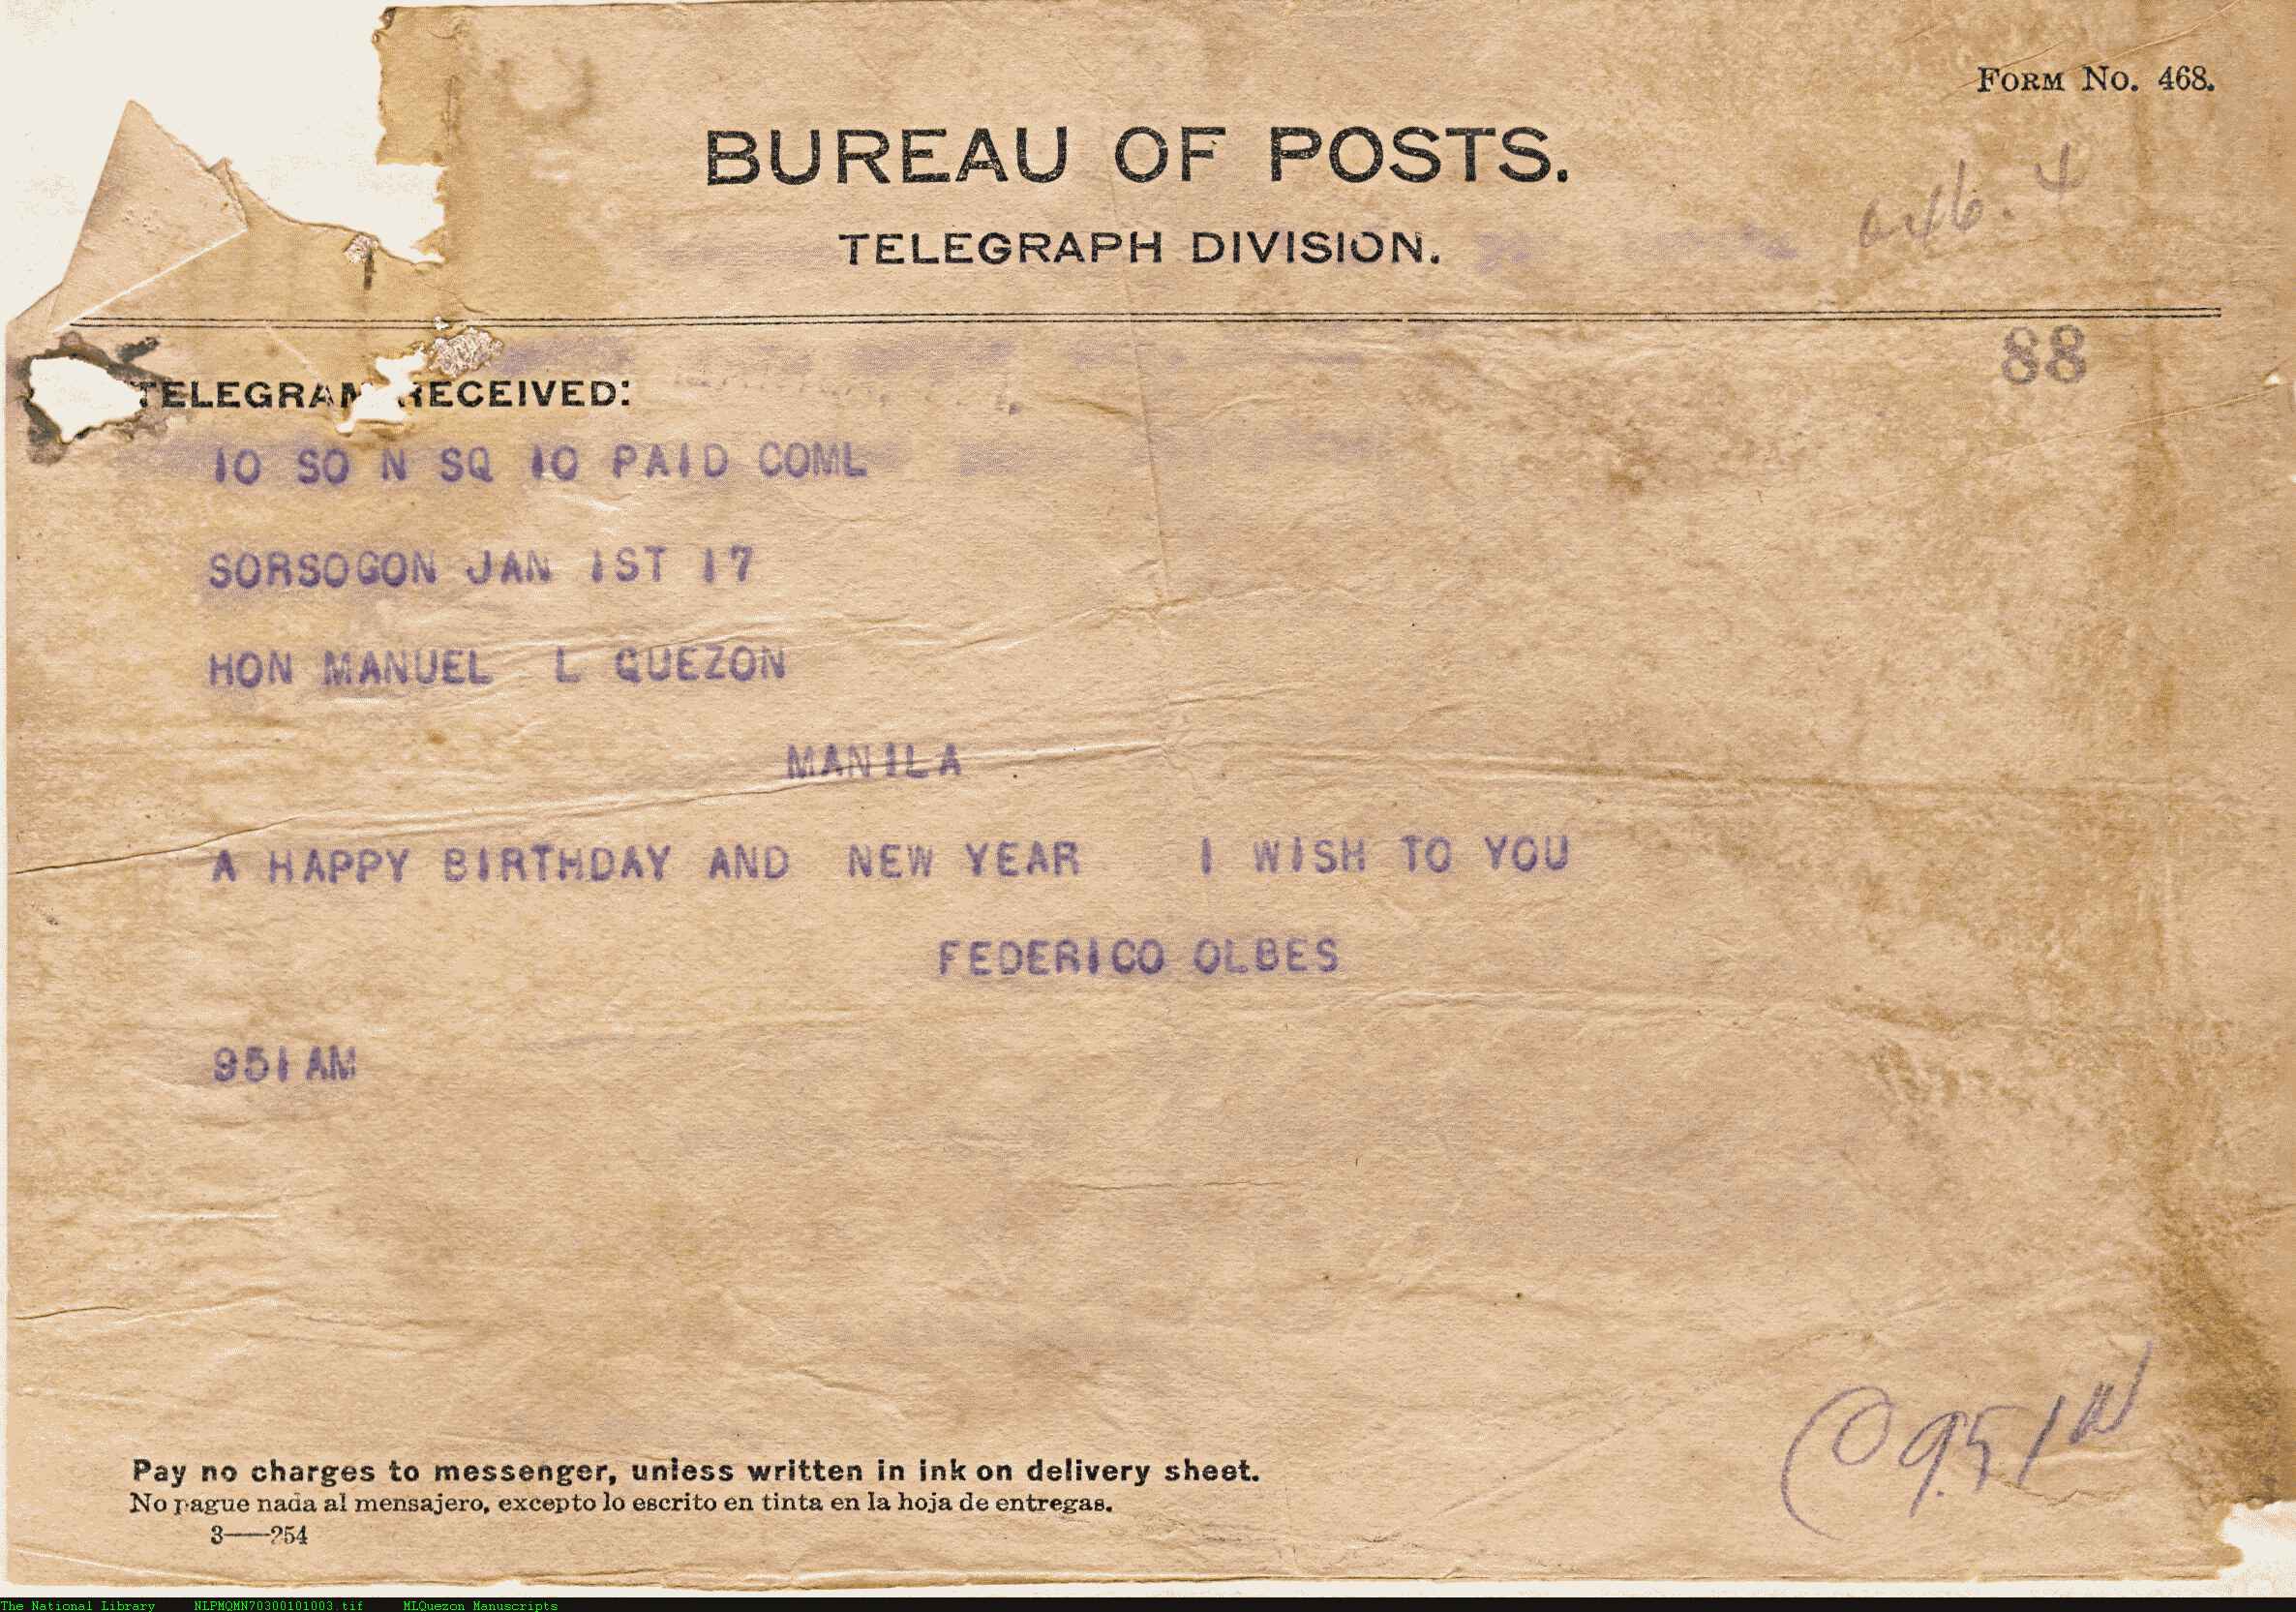 FORM NO. 468.
BUREAU OF POSTS.
TELEGRAPH DIVISION.
88
TELEGRAM RECEIVED:
10 SO N SQ 10 PAID COML
SORSOGON JAN 1ST 17
HON MANUEL L QUEZON
MANILA
A HAPPY BIRTHDAY AND NEW YEAR I WISH TO YOU
FEDERICO OLBES
951 AM
Pay no charges to messenger, unless written in ink on delivery sheet.
No pague nada al mensajero, excepto lo escrito en tinta en la hoja de entregas.
3—254
The National Library NLPMQMN70300101003.tif MLQuezon Manuscripts